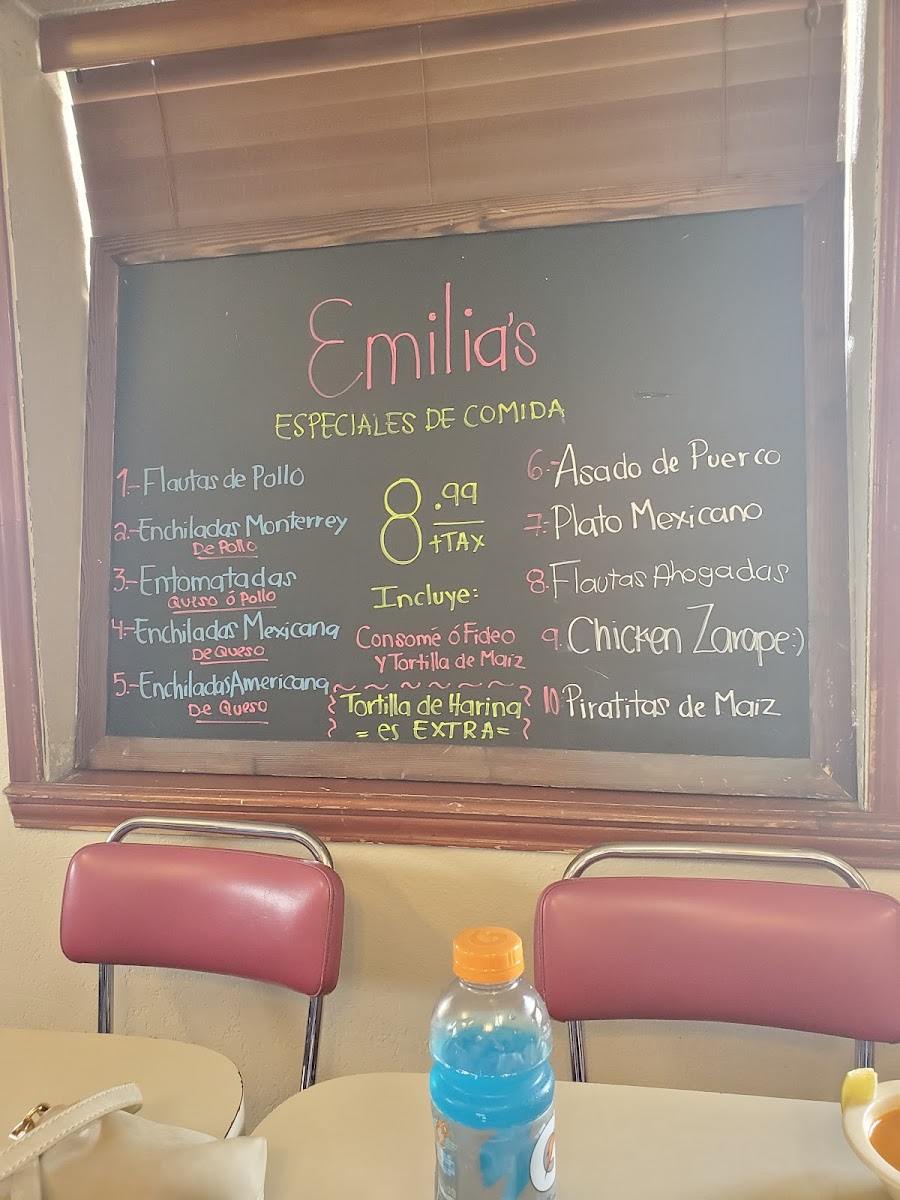 Emilia's
ESPECIALES DE COMIDA
1.- Flautas de Pollo
2.- Enchiladas Monterrey
De Pollo
3.- Entomatadas
Queso ó Pollo
4.- Enchiladas Mexicana
De Queso
5.- Enchiladas Americana
De Queso
8.99
+TAX
Incluye:
Consomé ó Fideo
y Tortilla de Maíz
Tortilla de Harina
= es EXTRA=
6.- Asado de Puerco
7.- Plato Mexicano
8. Flautas Ahogadas
9. Chicken Zarape:)
10. Piratitas de Maiz